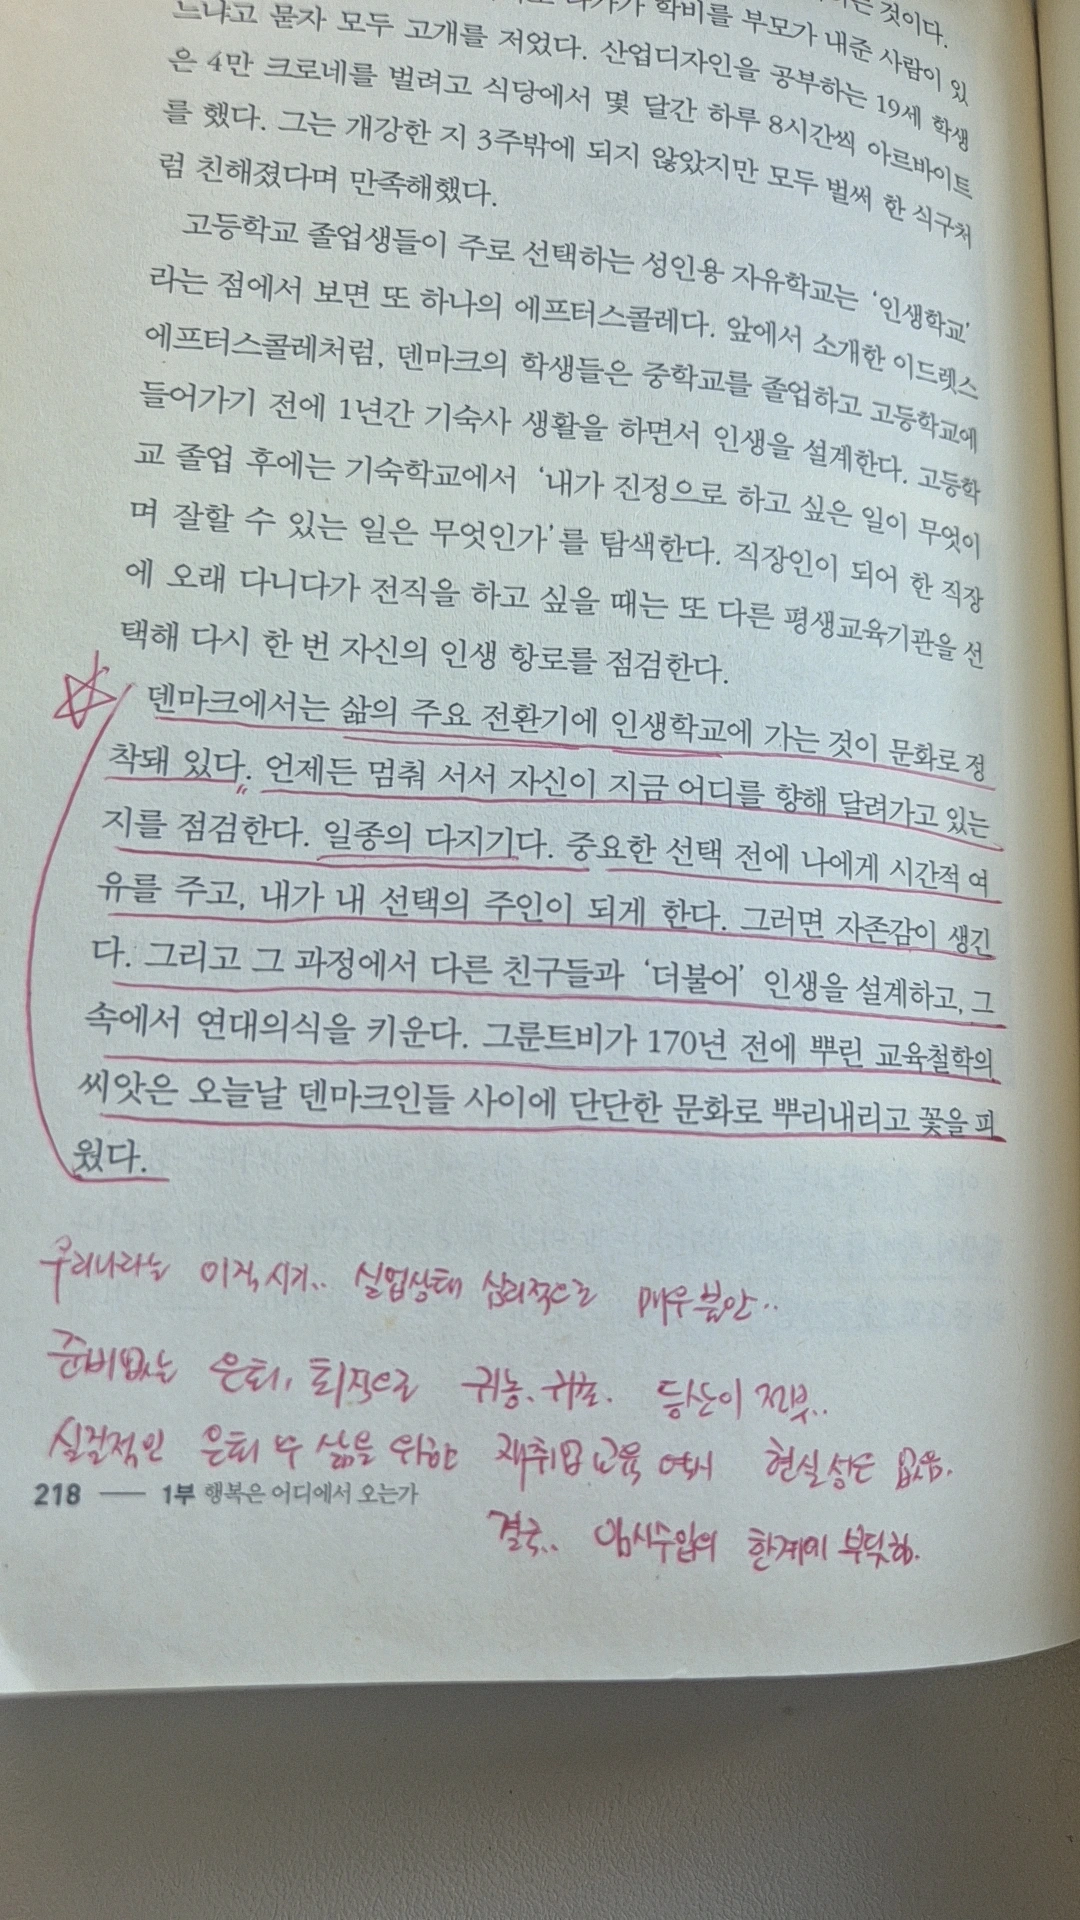 학비를 부모가 내준 사람이 있
느냐고 묻자 모두 고개를 저었다. 산업디자인을 공부하는 19세 학생
은 4만 크로네를 벌려고 식당에서 몇 달간 하루 8시간씩 아르바이트
를 했다. 그는 개강한 지 3주밖에 되지 않았지만 모두 벌써 한 식구처
럼 친해졌다며 만족해했다.
고등학교 졸업생들이 주로 선택하는 성인용 자유학교는 ‘인생학교’
라는 점에서 보면 또 하나의 에프터스콜레다. 앞에서 소개한 이드렛스
에프터스콜레처럼, 덴마크의 학생들은 중학교를 졸업하고 고등학교에
들어가기 전에 1년간 기숙사 생활을 하면서 인생을 설계한다. 고등학
교 졸업 후에는 기숙학교에서 ‘내가 진정으로 하고 싶은 일이 무엇이
며 잘할 수 있는 일은 무엇인가’를 탐색한다. 직장인이 되어 한 직장
에 오래 다니다가 전직을 하고 싶을 때는 또 다른 평생교육기관을 선
택해 다시 한 번 자신의 인생 항로를 점검한다.
덴마크에서는 삶의 주요 전환기에 인생학교에 가는 것이 문화로 정
착돼 있다. 언제든 멈춰 서서 자신이 지금 어디를 향해 달려가고 있는
지를 점검한다. 일종의 다지기다. 중요한 선택 전에 나에게 시간적 여
유를 주고, 내가 내 선택의 주인이 되게 한다. 그러면 자존감이 생긴
다. 그리고 그 과정에서 다른 친구들과 ‘더불어’ 인생을 설계하고, 그
속에서 연대의식을 키운다. 그룬트비가 170년 전에 뿌린 교육철학의
씨앗은 오늘날 덴마크인들 사이에 단단한 문화로 뿌리내리고 꽃을 피
웠다.
우리나라는 이직시기.. 실업상태 심리적으로 매우 불안..
준비없는 은퇴, 퇴직으로 귀농. 귀촌. 등산이 전부..
실질적인 은퇴 후 삶을 위한 재취업 교육 역시 현실상은 없음.
218 — 1부 행복은 어디에서 오는가
결국.. 임시수입의 한계에 부딪힘.